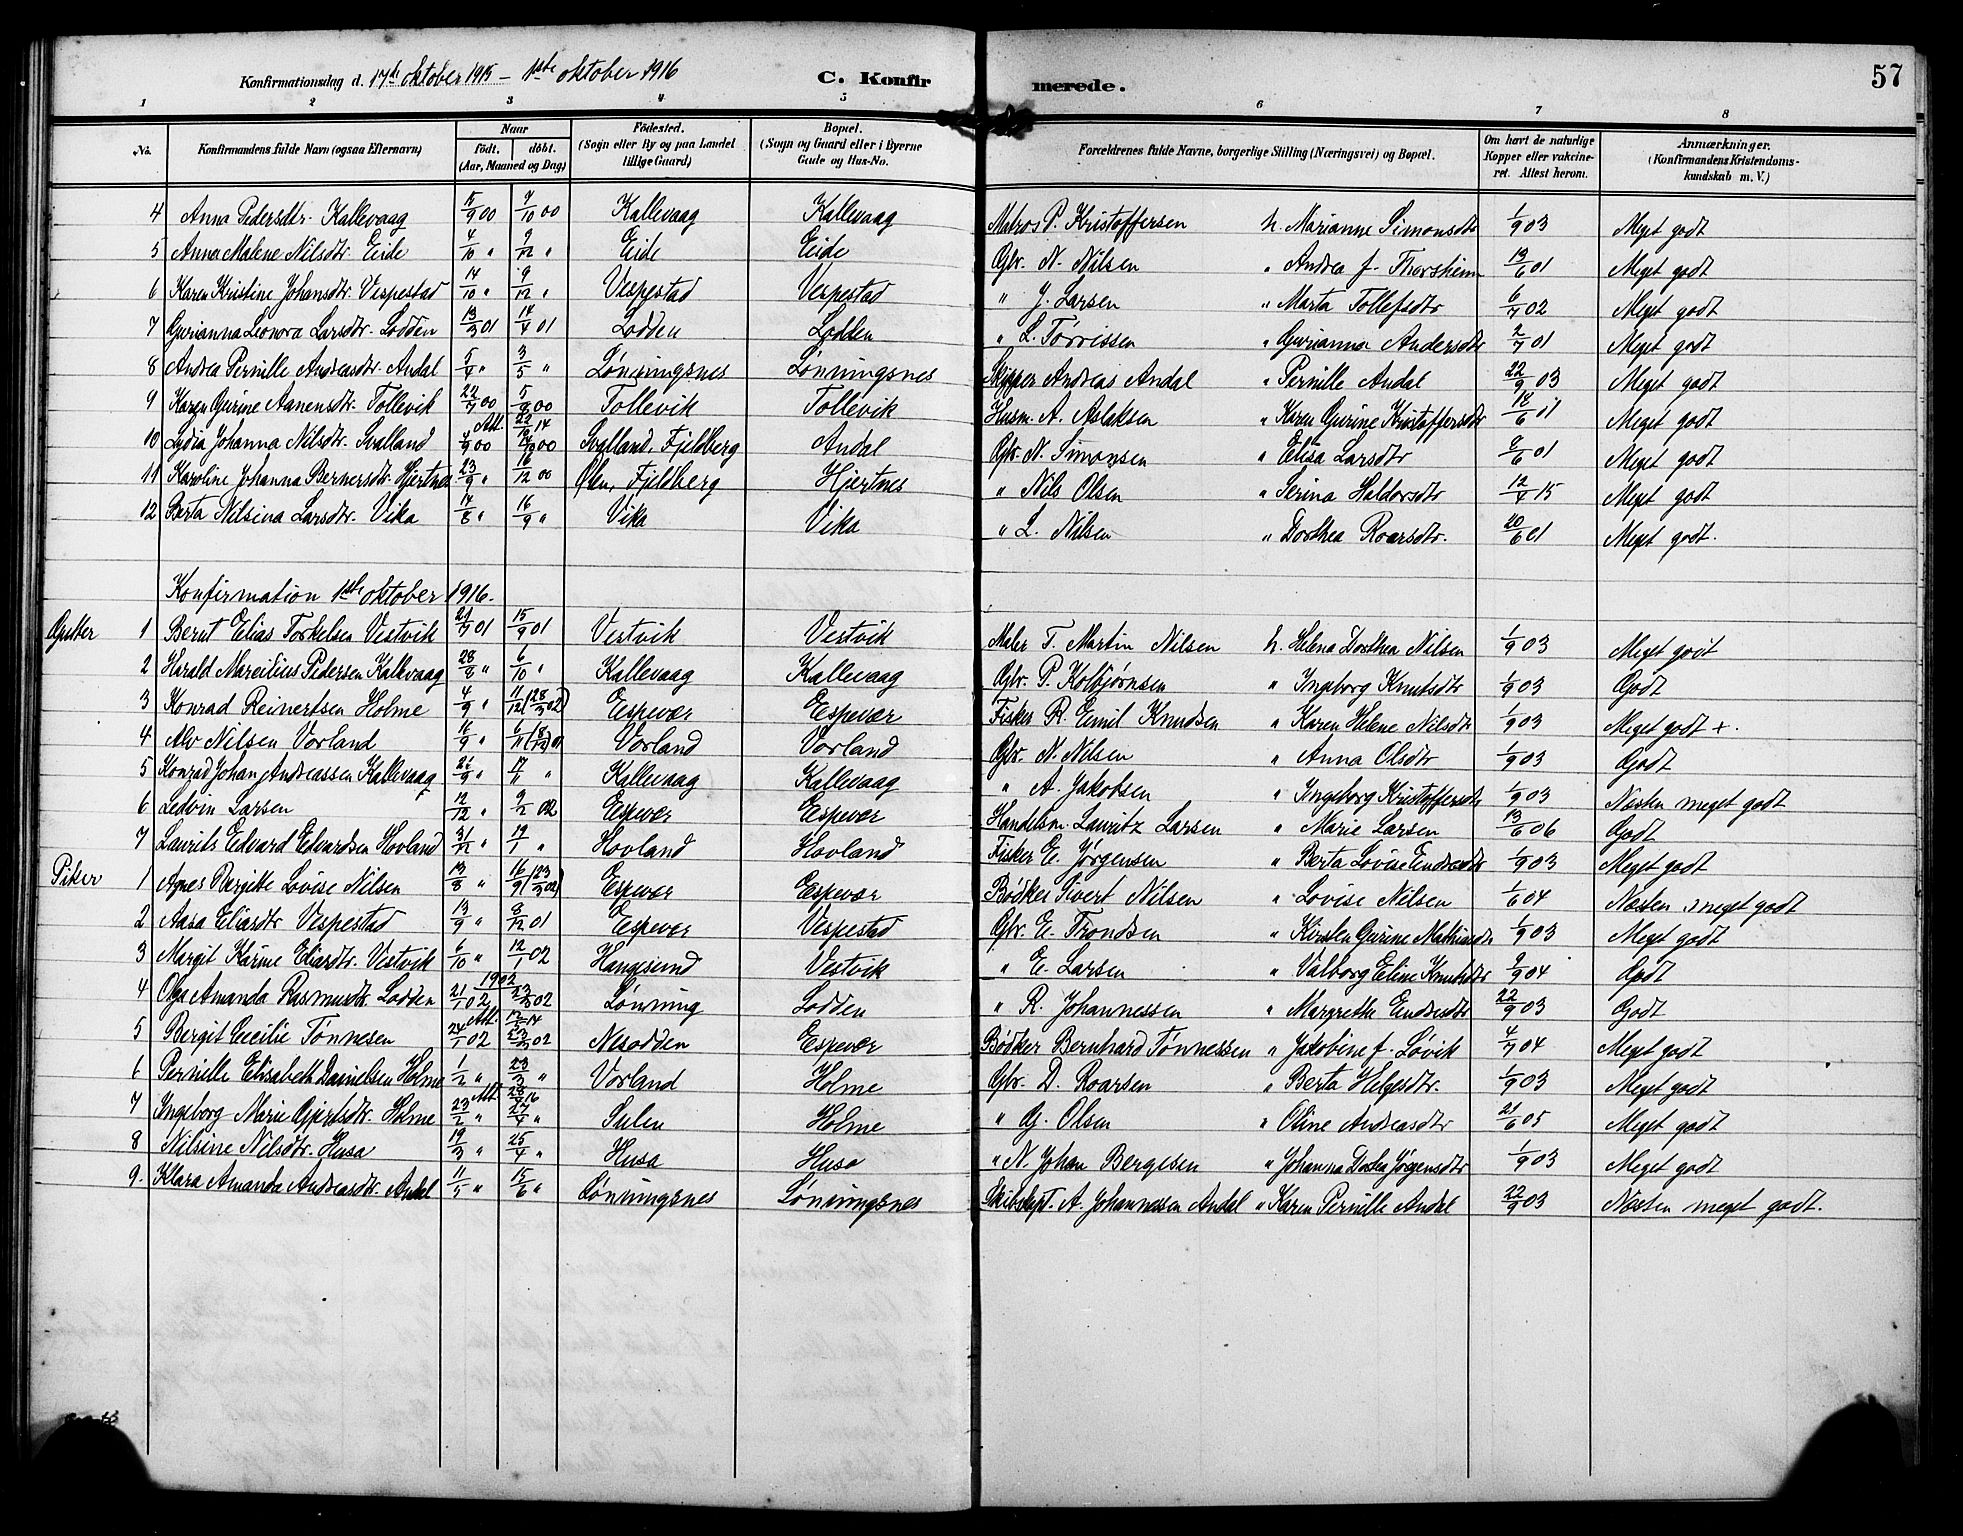 Konfirmationsdag d. 17de oktober 1915 – 1ste oktober 1916 C. Konfirmerede. 57
1 2 3 4 5 6 7 8
No. Konfirmandens fulde Navn (ogsaa Efternavn) Naar födt. döbt. (Aar, Maaned og Dag) Födested. (Sogn eller By og paa Landet tillige Gaard) Bopæl. (Sogn og Gaard eller i Byerne Gade og Hus-No. Forældrenes fulde Navne, borgerlige Stilling (Næringsvei) og Bopæl. Om havt de naturlige Kopper eller vakcineret. Attest herom. Anmærkninger. (Konfirmandens Kristendomskundskab m. V.)
4 Anna Pedersdtr. Kallevaag 5/9 00 7/10 00 Kallevaag Kallevaag Matros P. Kristoffersen h. Marianne Simonsdtr 1/9 03 Meget godt
5 Anna Malene Nilsdtr. Eide 4/10 " 9/12 " Eide Eide Gbr. N. Nilsen " Andrea f. Thorsheim 13/6 01 Meget godt
6 Karen Kristine Johansdtr. Vespestad 14/10 " 9/12 " Vespestad Vespestad " J. Larsen " Marta Tollefsdtr 6/7 02 Meget godt
7 Gurianna Leonora Larsdtr. Lodden 13/3 01 14/4 01 Lodden Lodden " L. Torrissen " Gurianna Andersdtr 2/7 01 Meget godt
8 Andrea Pernille Andreasdtr. Andal 5/4 " 3/5 " Lönningsnes Lönningsnes Skipper Andreas Andal " Pernille Andal 22/9 03 Meget godt
9 Karen Gurine Aanensdtr. Tollevik 22/7 00 5/8 00 Tollevik Tollevik Husm. A. Aslaksen " Karen Gurine Kristoffersdtr 18/6 01 Meget godt
10 Lydia Johanna Nilsdtr. Svalland 4/9 00 Att. 22/12 14 00 Svalland, Fjeldberg Andal Gbr. N. Simonsen " Elisa Larsdtr 2/6 01 Meget godt
11 Karoline Johanna Bernersdtr. Hjertnes 23/9 " 16/12 00 Ølen, Fjeldberg Hjertnes " Nils Olsen " Serina Haldorsdtr 12/4 15 Meget godt
12 Berta Nilsina Larsdtr. Vika 14/8 " 16/9 " Vika Vika " L. Nilsen " Dorthea Roarsdtr. 20/6 01 Meget godt.
Konfirmation 1ste oktober 1916.
Gutter 1 Bernt Elias Torkelsen Vestvik 21/7 01 15/9 01 Vestvik Vestvik Maler T. Martin Nilsen h. Helena Dorthea Nilsen 1/9 03 Meget godt
2 Harald Marcilius Pedersen Kallevaag 28/8 " 6/10 " Kallevaag Kallevaag Gbr. P. Kolbjørnsen " Ingeborg Knutsdtr 1/9 03 Godt
3 Konrad Reinertsen Holme 4/9 " 11/12 (28/3 02) Espevær Espevær Fisker R. Emil Knudsen " Karen Helene Nilsdtr 1/9 03 Meget godt +.
4 Alv Nilsen Vorland 16/9 " 6/11 (8/12) 01 Vorland Vorland Gbr. N. Nilsen " Anna Olsdtr 1/9 03 Godt
5 Konrad Johan Andreassen Kallevaag 21/9 " 17/11 " Kallevaag Kallevaag " A. Jakobsen " Ingeborg Kristoffersdtr 1/9 03 Næsten meget godt
6 Ledvin Larsen 12/12 " 9/2 02 Espevær Espevær Handelsm. Lauritz Larsen " Marie Larsen 13/6 06 Godt
7 Laurits Edvard Edvardsen Hovland 31/12 " 19/1 " Hovland Hovland Fisker E. Jørgensen " Berta Lovise Endresdtr 1/9 03 Meget godt
Piker 1 Agnes Bergitte Lovise Nilsen 13/8 " 16/9 (23/3 02) Espevær Espevær Bødker Sivert Nilsen " Lovise Nilsen 1/6 04 Næsten meget godt
2 Aasa Eliasdtr Vespestad 13/9 " 8/12 01 Espevær Vespestad Gbr. E. Trondsen " Kirsten Gurine Mathiasdtr 1/9 03 Meget godt
3 Margit Karine Eliasdtr. Vestvik 6/10 " 12/1 02 Hangesund Vestvik " E. Larsen " Valborg Eline Knutsdtr 9/9 04 Godt
1902
4 Olga Amanda Rasmusdtr Lodden 21/1 02 23/3 02 Lønning Lodden " R. Johannessen " Margrethe Endresdtr 22/9 03 Godt
5 Bergit Cecilie Tønnesen 24/1 02 Att. 12/5 14 23/3 02 Nesodden Espevær Bödker Bernhard Tønnessen " Jakobine f. Løvik 4/7 04 Meget godt
6 Pernille Elisabeth Danielsen Holme 1/2 " 23/3 " Vorland Holme Gbr. D. Roarsen " Berta Helgesdtr. 1/9 03 Meget godt
7 Ingeborg Marie Gjertsdtr. Holme 23/2 " Att. 16 27/4 " Sulen Holme " G. Olsen " Oline Andreasdtr 21/6 05 Meget godt
8 Nilsine Nilsdtr. Husa 19/3 " 25/4 " Husa Husa " N. Johan Bergesen " Johanna Dortea Jørgensdtr 1/9 03 Meget godt
9. Klara Amanda Andreasdtr. Andal 11/5 " 15/6 " Lönningsnes Lönningsnes Skibskapt. A. Johannessen Andal " Karen Pernille Andal 22/9 03 Næsten meget godt.